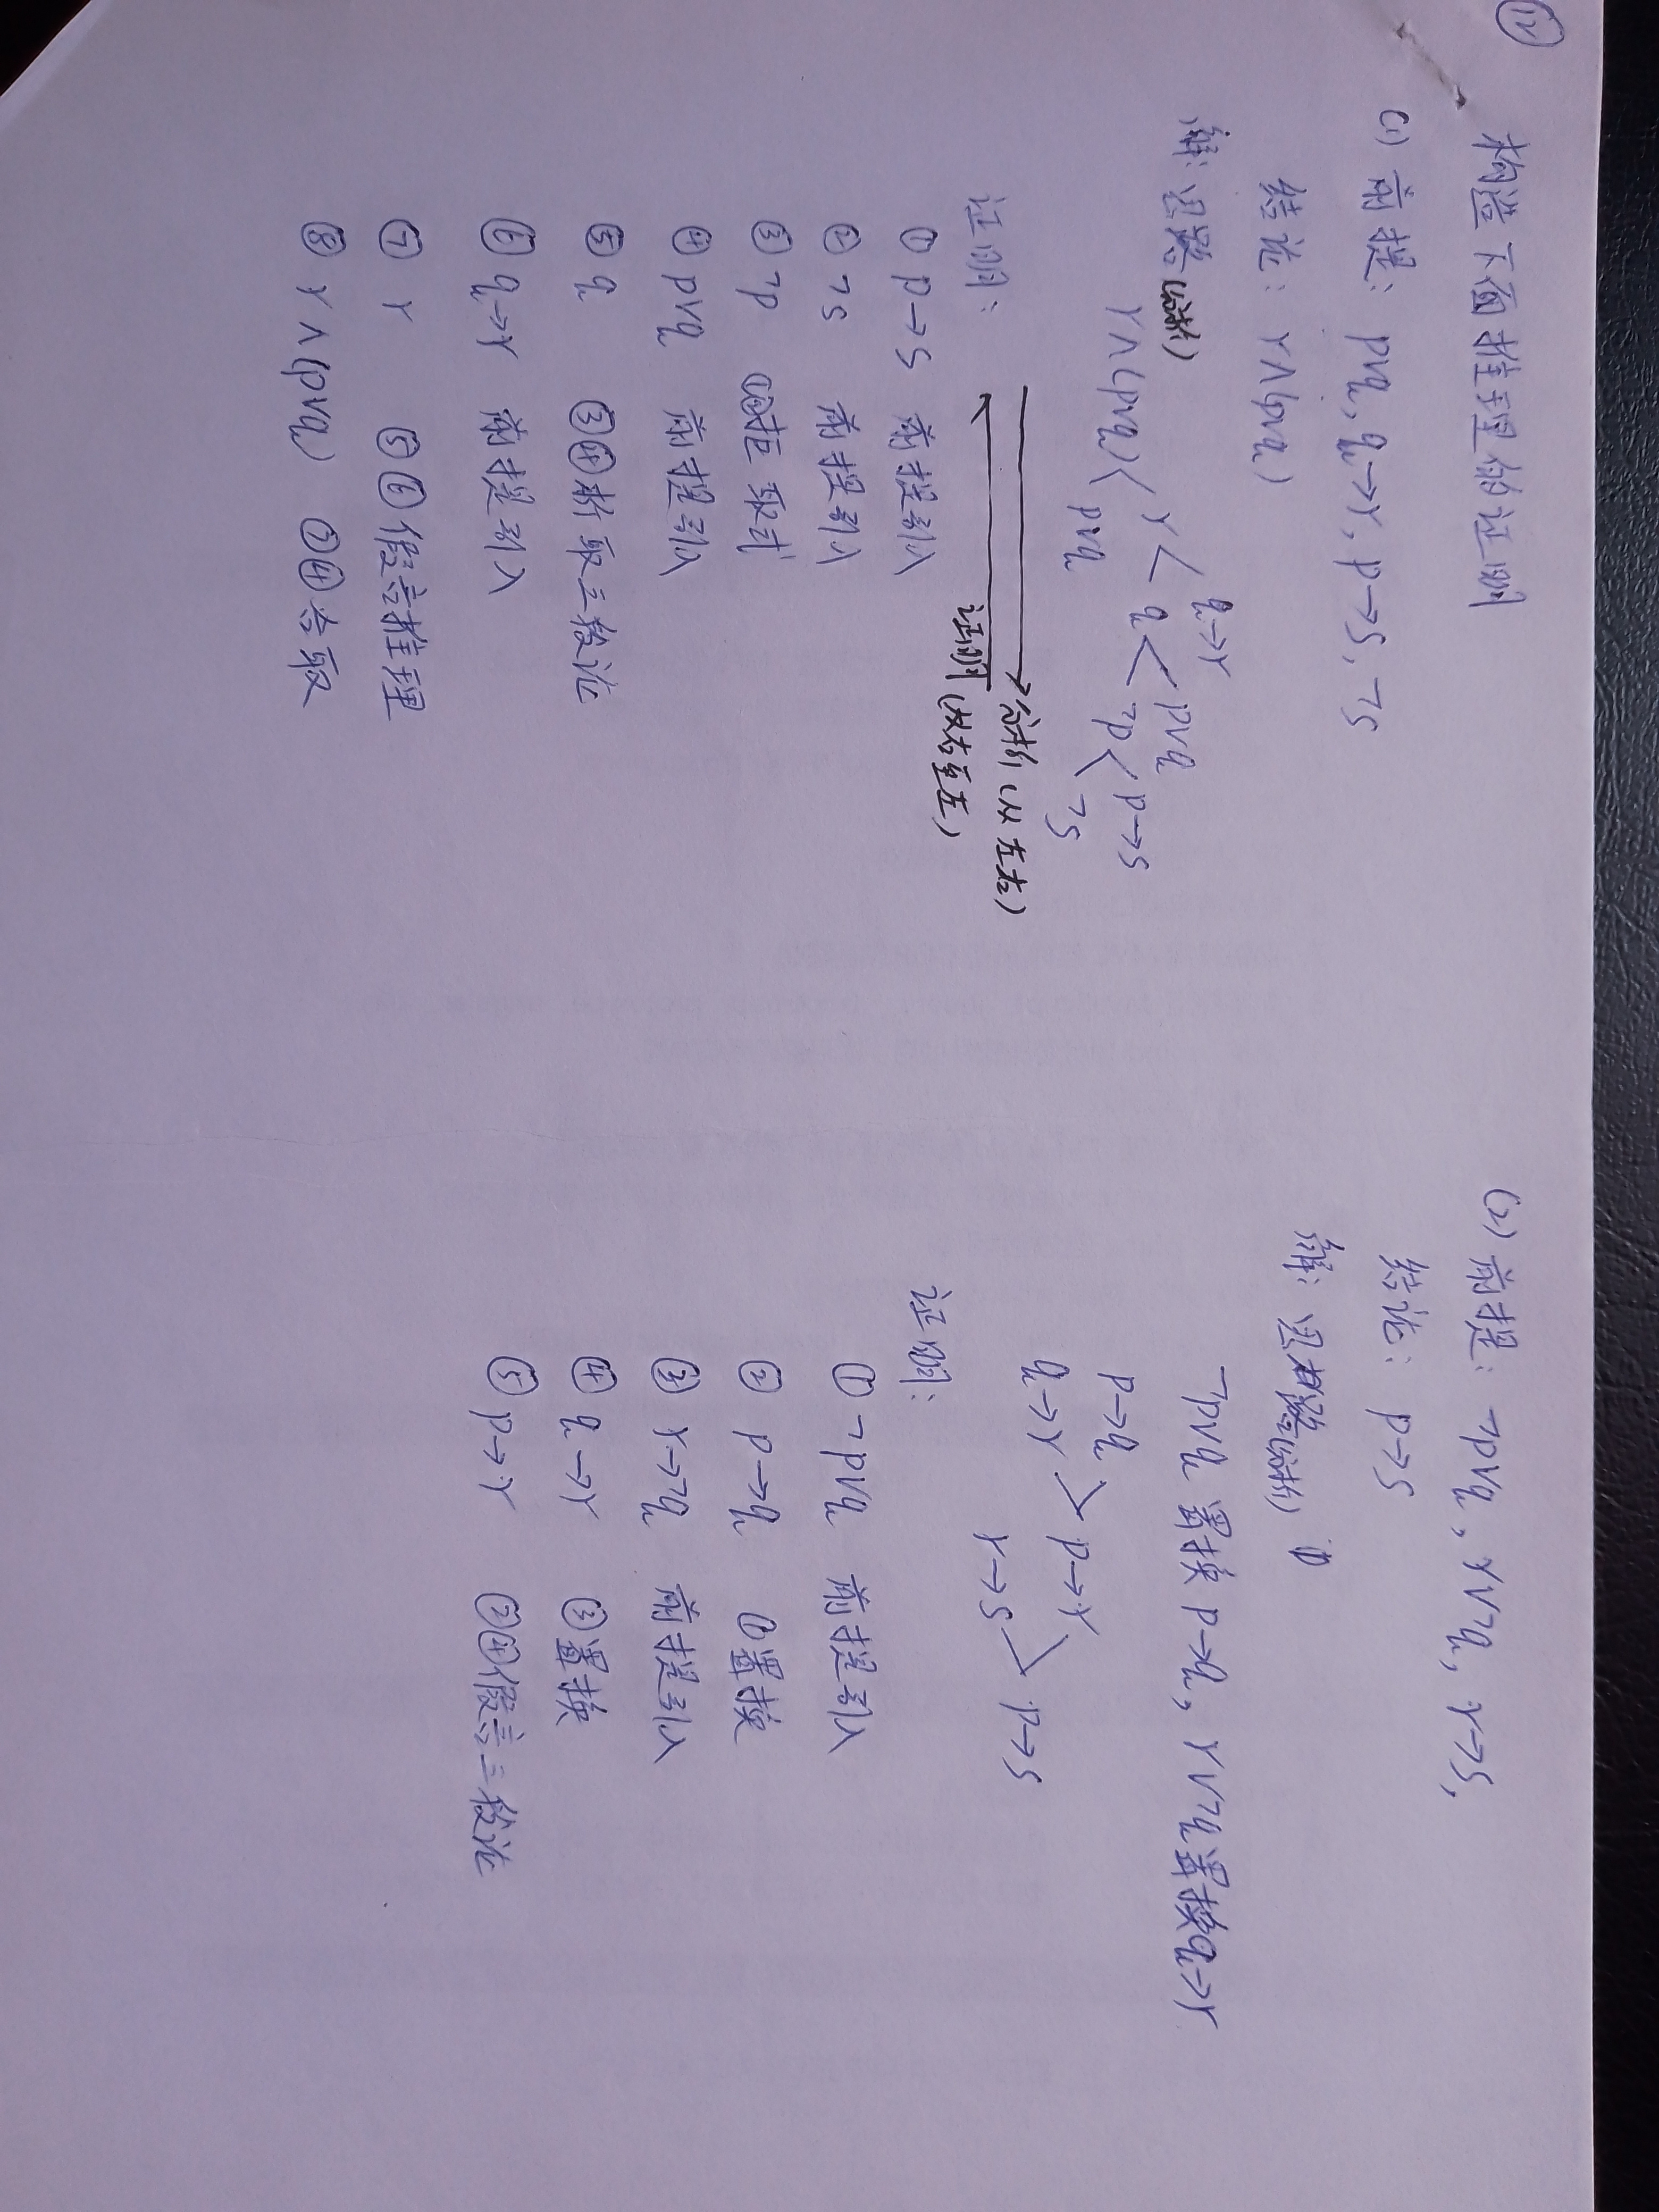 ⑫
构造下面推理的证明
(1) 前提: p∨q, q→r, p→s, ¬s
结论: r∧(p∨q)
解: 思路(分析)
q→r
r < q < p∨q
r∧(p∨q) < ¬p < p→s
p∨q ¬s
分析(从左右)
证明(从右至左)
证明:
① p→s 前提引入
② ¬s 前提引入
③ ¬p ①②拒取式
④ p∨q 前提引入
⑤ q ③④析取三段论
⑥ q→r 前提引入
⑦ r ⑤⑥假言推理
⑧ r∧(p∨q) ⑦④合取
(2) 前提: ¬p∨q, r∨¬q, r→s,
结论: p→s
解: 思路(分析)
¬p∨q 置换 p→q, r∨¬q 置换 q→r
p→q
q→r > p→r
r→s > p→s
证明:
① ¬p∨q 前提引入
② p→q ①置换
③ r→¬q 前提引入
④ q→r ③置换
⑤ p→r ②④假言三段论